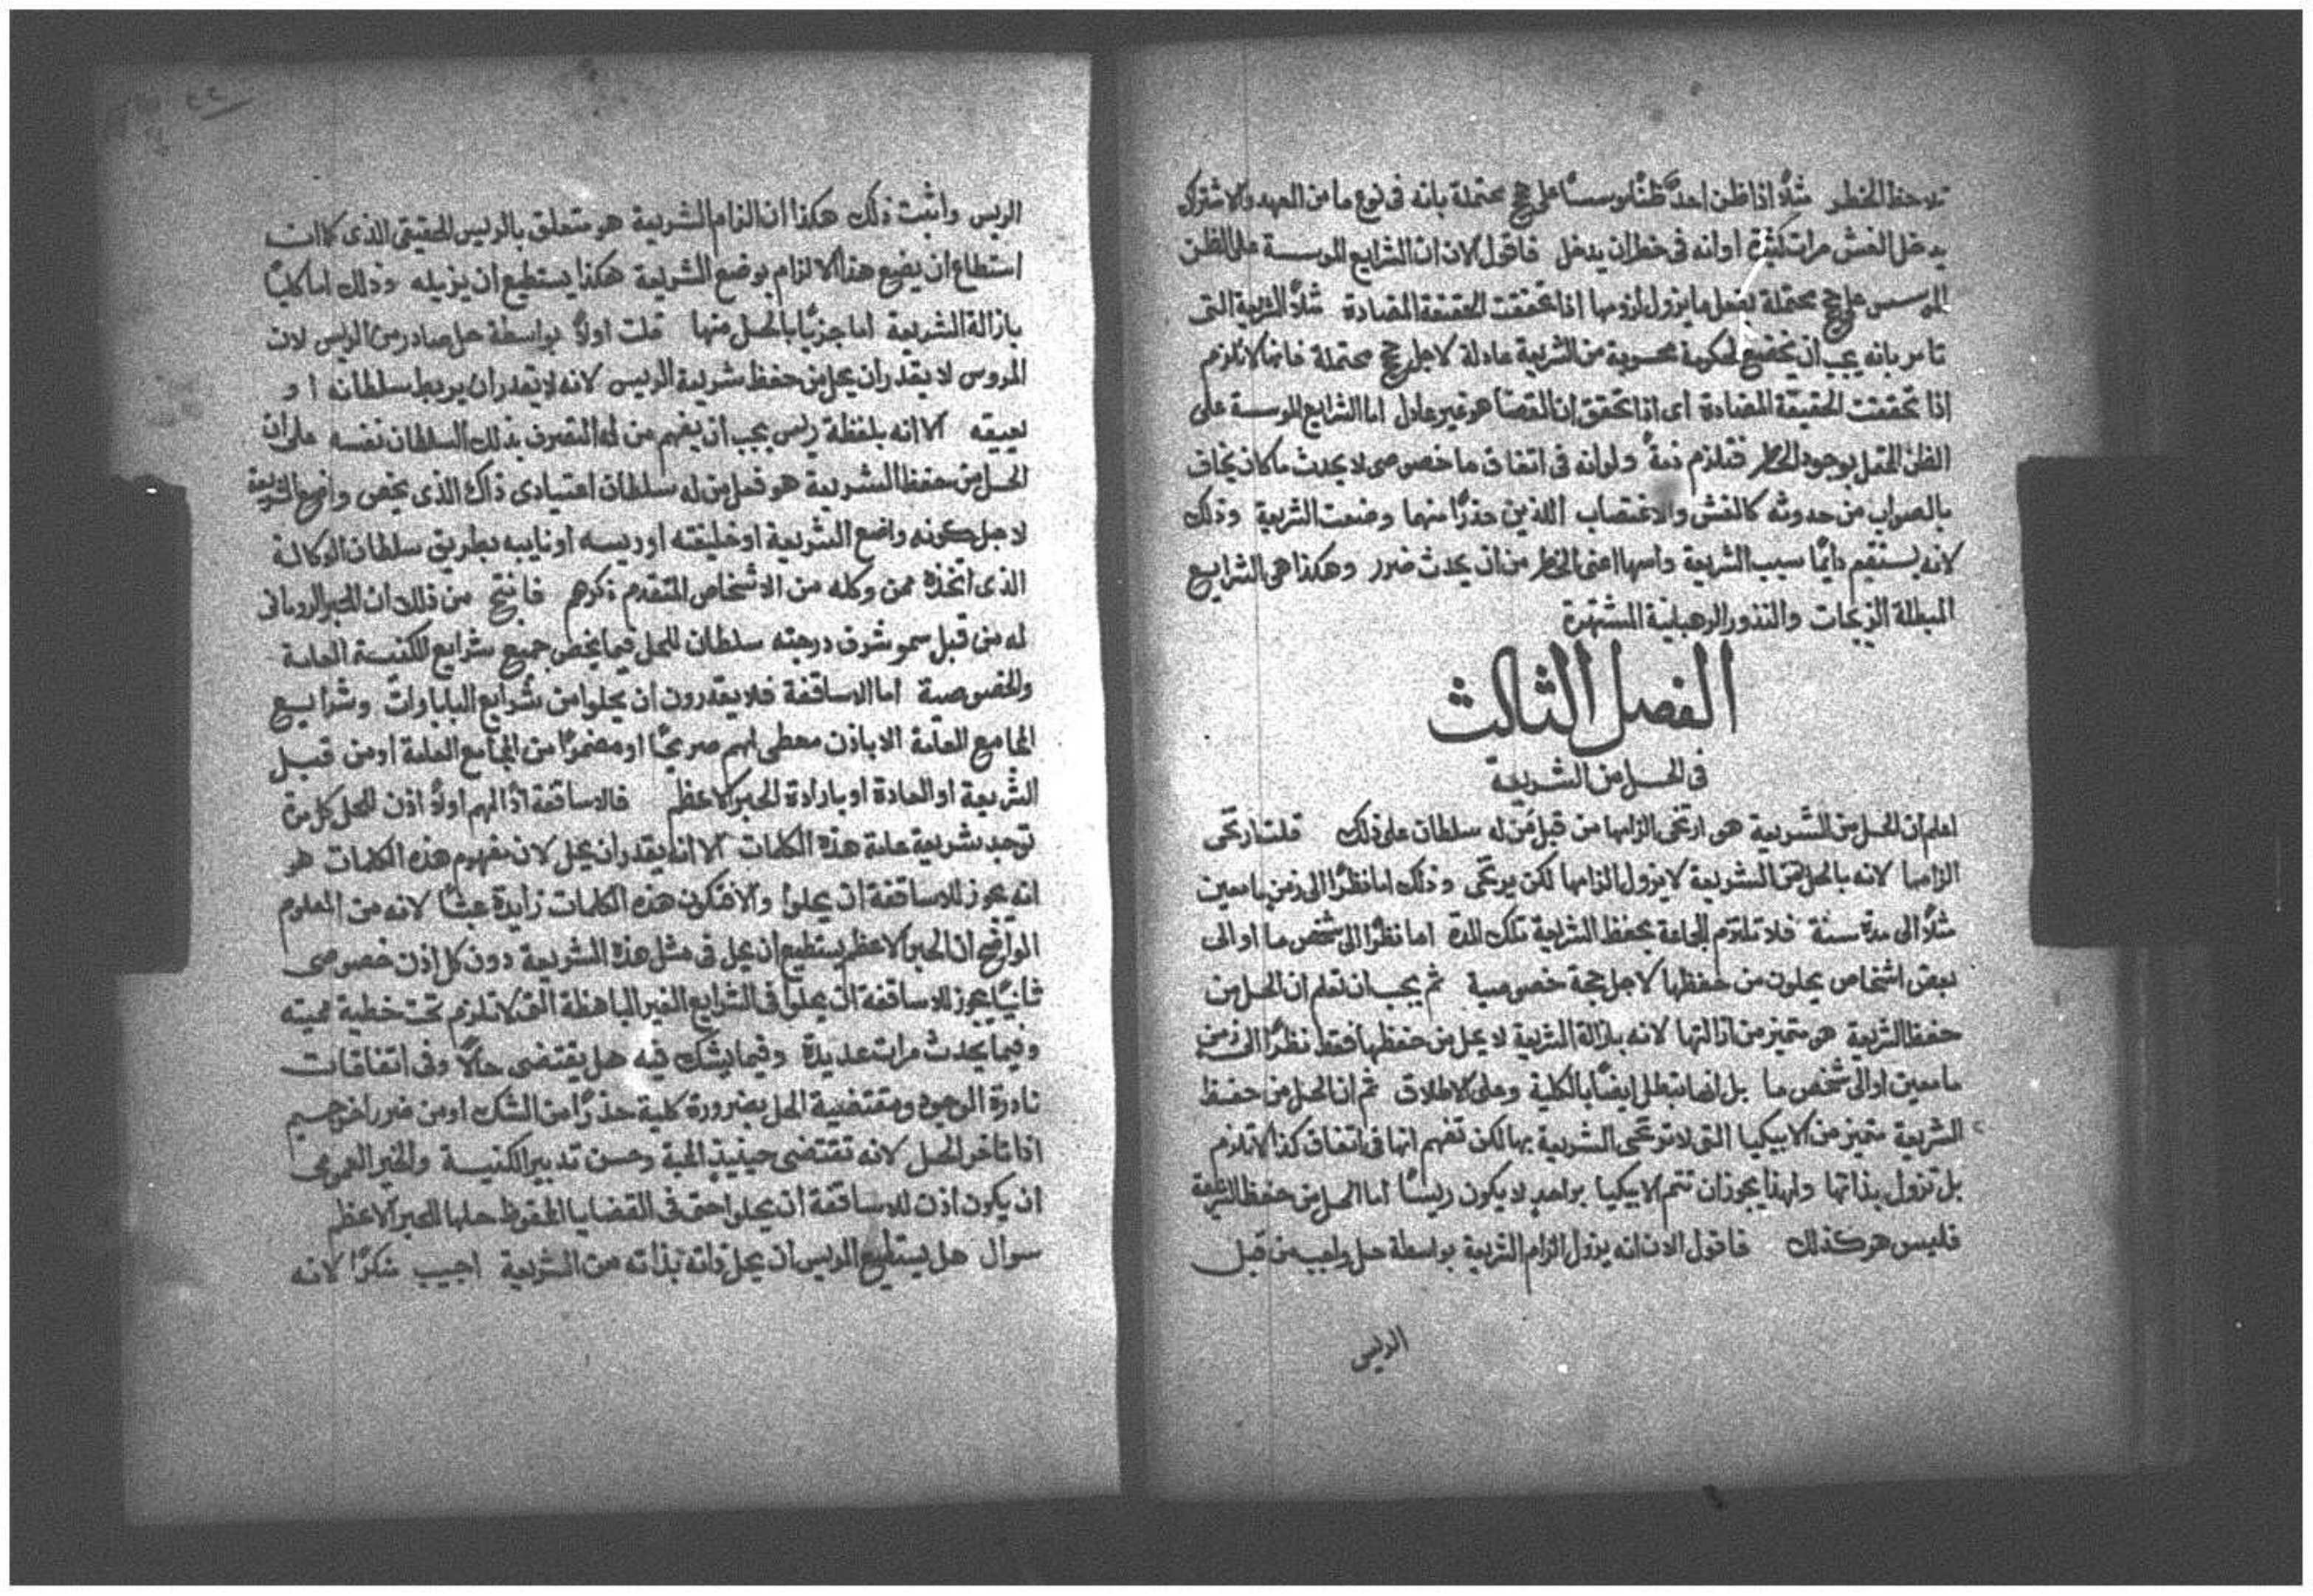 تلاحظ الخطر مثلاً اذا ظن احدٌ ظنًا موسسًا على حجج محتملة بانه فى نوع ما من العهد والاشتراك
يدخل الغش مرات كثيرة او انه فى خطر ان يدخل فاقول الان ان الشرايع الموسسة على الظن
الموسس على حجج محتملة لفعل ما يزول لزومها اذا تحققت الحقيقة المضادة مثلاً الشريعة التى
تامر بانه يجب ان تخضع لحكومة من الشريعة عادلة لاجل حجج محتملة فانها لا تلزم
اذا تحققت الحقيقة المضادة اى اذا تحقق ان القصاص هو غير عادل اما الشرايع الموسسة على
الظن المحتمل بوجود الخطر فتلزم ذمةً ولو انه فى اتفاق ما خصوصى لا يحدث ما كان يخاف
بالصواب من حدوثه كالغش والاغتصاب اللذين حذرًا منهما وضعت الشريعة وذلك
لانه يستقيم دايمًا سبب الشريعة واسها اعنى الخطر من ان يحدث ضرر وهكذا هى الشرايع
المبطلة الزيجات والنذور الرهبانية المشتهرة
الفصل الثالث
فى الحل من الشريعة
اعلم ان الحل من الشريعة هى ارتخى الزامها من قبل مَن له سلطان على ذلك قلت ارتخى
الزامها لانه بالحل من الشريعة لا يزول الزامها لكن يرتخى وذلك اما نظرًا الى زمن ما معين
مثلاً الى مدة سنة فلا تلتزم الجماعة بحفظ الشريعة تلك المدة اما نظرًا الى شخص ما او الى
بعض اشخاص يحلون من حفظها لاجل حجة خصوصية ثم يجب ان تعلم ان الحل من
حفظ الشريعة هو متميز من ازالتها لانه بازالة الشريعة لا يحل من حفظها فقط نظرًا الى زمن
ما معين او الى شخص ما بل انها تبطل ايضًا بالكلية وعلى الاطلاق ثم ان الحل من حفظ
الشريعة متميز من الابيكيا التى لا ترتخى الشريعة بها لكن تفهم انها فى اتفاق كذا لا تلزم
بل تزول بذاتها ولهذا يجوز ان تتم الابيكيا بواحدٍ لا يكون ريسًا اما الحل من حفظ الشريعة
فليس هو كذلك فاقول الان انه يزول الزام الشريعة بواسطة حل واجب من قبل
الريس
الريس واثبت ذلك هكذا ان الزام الشريعة هو متعلق بالريس الحقيقى الذى كما انه
استطاع ان يضع هذا الالزام بوضع الشريعة هكذا يستطيع ان يزيله وذلك اما كليًا
بازالة الشريعة اما جزيًا بالحل منها قلت اولاً بواسطة حل صادر من الريس لان
المروس لا يقدر ان يحل من حفظ شريعة الريس لانه لا يقدر ان يربط سلطانه او
يعيقه الا انه بلفظة ريس يجب ان يفهم من له التصرف بذلك السلطان نفسه على ان
الحل من حفظ الشريعة هو فعل من له سلطان اعتيادى ذاك الذى يخص واضع الشريعة
لاجل كونه واضع الشريعة او خليفته او ريسه او نايبه بطريق سلطان الوكالة
الذى اتخذه ممن وكله من الاشخاص المتقدم ذكرهم فانتج من ذلك ان الحبر الرومانى
له من قبل سمو شرف درجته سلطان للحل فيما يخص جميع شرايع الكنيسة العامة
والخصوصية اما الاساقفة فلا يقدرون ان يحلوا من شرايع الباباوات وشرايع
المجامع العامة الا باذن معطى لهم صريحًا او مضمرًا من المجامع العامة او من قبل
الشريعة او العادة او بارادة الحبر الاعظم فالاساقفة اذًا لهم اولاً اذن للحل كل مرة
توجد بشريعة عامة هذه الكلمات الا انه يقدر ان يحل لان مفهوم هذه الكلمات هو
انه يجوز للاساقفة ان يحلوا والا فتكون هذه الكلمات زايدة عبثًا لانه من المعلوم
الواضح ان الحبر الاعظم يستطيع ان يحل فى مثل هذه الشريعة دون كل اذن خصوصى
ثانيًا يجوز للاساقفة ان يحلوا فى الشرايع الغير الباهظة التى لا تلزم تحت خطية مميته
وفيما يحدث مرات عديدة وفيما يشك فيه هل يقتضى حلاً وفى اتفاقات
نادرة الوجود ومقتضية الحل بضرورة كلية حذرًا من الشك او من ضرر اخر جسيم
اذا تاخر الحل لانه تقتضى حينيذٍ المحبة وحسن تدبير الكنيسة والخير العمومى
ان يكون اذن للاساقفة ان يحلوا حتى فى القضايا المحفوظ حلها للحبر الاعظم
سوال هل يستطيع الريس ان يحل ذاته بذاته من الشريعة اجيب منكرًا لانه